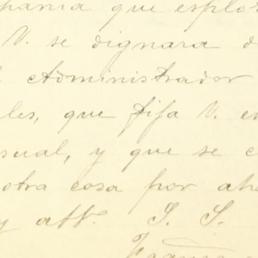 que explo
V. se dignara d
Administrador
les, que fija V. en
sual, y que se c
otra cosa por aho
y att. S. S.